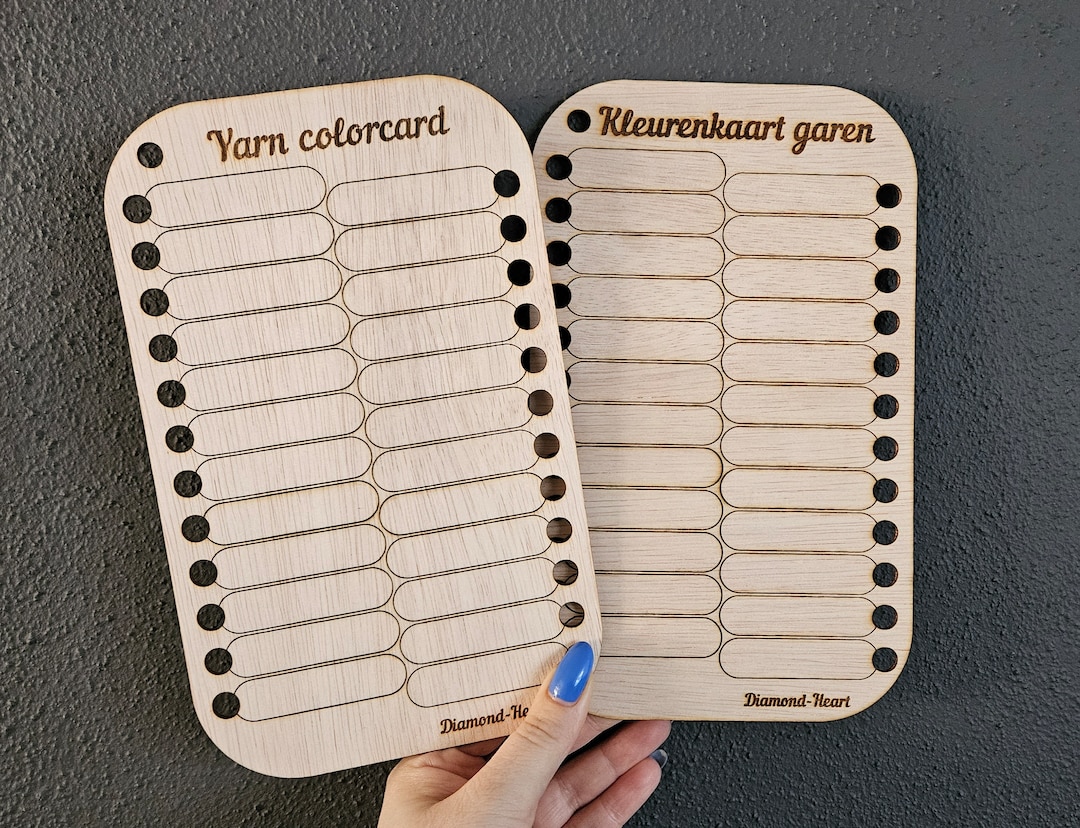 Yarn colorcard
Diamond-He
Kleurenkaart garen
Diamond-Heart